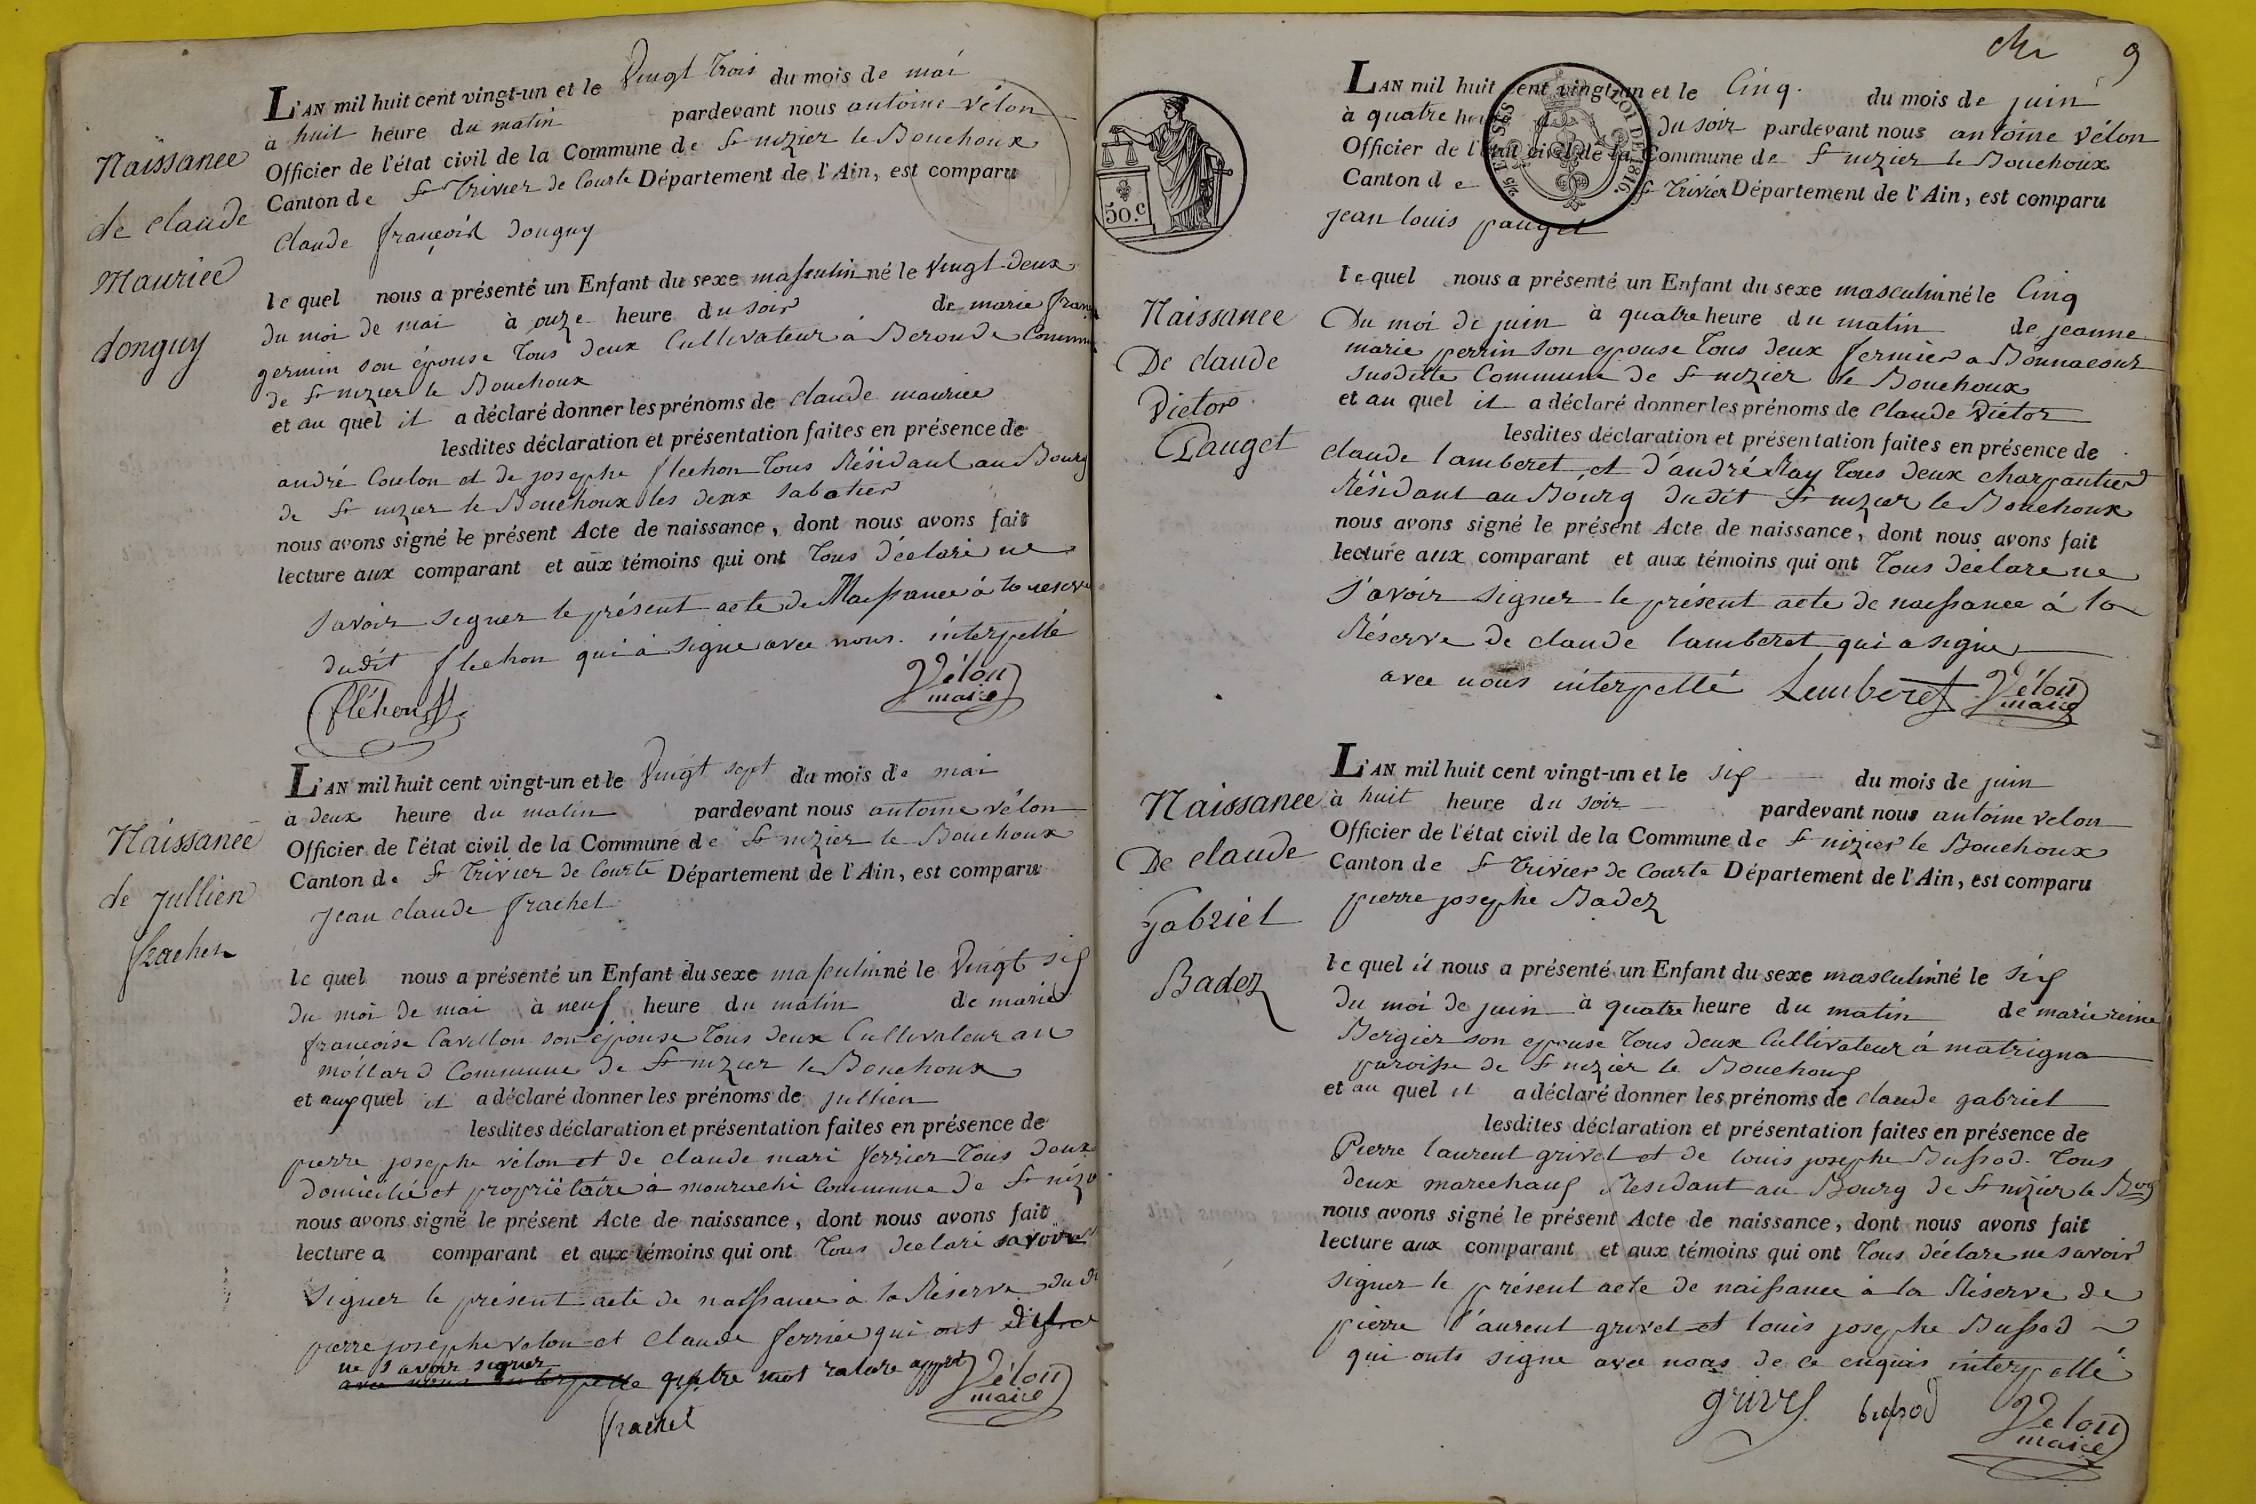 Naissance
de claude
Maurice
donguy
L'AN mil huit cent vingt-un et le Vingt Trois du mois de mai
à huit heure du matin pardevant nous antoine vélon
Officier de l'état civil de la Commune de St nizier le Bouchoux
Canton de St Trivier de Courte Département de l'Ain, est comparu
Claude françois donguy
le quel nous a présenté un Enfant du sexe masculin né le Vingt-deux
du moi de mai à onze heure du soir de marie
germin son épouse Tous deux Cultivateur à Beronde
de St nizier le Bouchoux
et au quel il a déclaré donner les prénoms de Claude maurice
lesdites déclaration et présentation faites en présence de
andré Coulon et de josephe flechon Tous Résidant au Bourg
de St nizier le Bouchoux les deux sabotier
nous avons signé le présent Acte de naissance, dont nous avons fait
lecture aux comparant et aux témoins qui ont Tous déclaré ne
savoir signer le présent acte de Naissance à la reserve
dudit flechon qui à signé avec nous. interpellé
fléhon Vélon
maire
Naissance
de jullien
frachet
L'AN mil huit cent vingt-un et le Vingt sept du mois de mai
à deux heure du matin pardevant nous antoine vélon
Officier de l'état civil de la Commune de St nizier le Bouchoux
Canton de St Trivier de Courte Département de l'Ain, est comparu
Jean claude frachet
le quel nous a présenté un Enfant du sexe masculin né le Vingt six
du moi de mai à neuf heure du matin de marie
françoise Cavillon son épouse Tous deux Cultivateur au
mollard Commune de St nizier le Bouchoux
et aux quel il a déclaré donner les prénoms de jullien
lesdites déclaration et présentation faites en présence de
pierre josephe vélon et de claude mari ferrier Tous deux
domicilié et propriétaire à Commune de St
nous avons signé le présent Acte de naissance, dont nous avons fait
lecture a comparant et aux témoins qui ont Tous déclaré savoir
signer le présent acte de naissance à la Réserve du
pierre josephe velon et Claude ferrier qui ont
ne savoir signer
avec nous interpellé quatre mot rature Vélon
maire
frachet
9
SES
LOI DE 1816
50.c
Naissance
De claude
Victor
Pauget
L'AN mil huit cent vingt-un et le Cinq du mois de juin
à quatre heure du soir pardevant nous antoine vélon
Officier de l'état civil de la Commune de St nizier le Bouchoux
Canton de St Trivier Département de l'Ain, est comparu
jean louis pauget
le quel nous a présenté un Enfant du sexe masculin né le Cinq
Du moi de juin à quatre heure du matin de jeanne
marie perrin son epouse Tous deux fermier a Bonnacour
susditte Commune de St nizier le Bouchoux
et au quel il a déclaré donner les prénoms de Claude Victor
lesdites déclaration et présentation faites en présence de
claude lamberet et d'andré Ray Tous deux charpantier
Résidant au Bourg dudit St nizier le Bouchoux
nous avons signé le présent Acte de naissance, dont nous avons fait
lecture aux comparant et aux témoins qui ont Tous déclare ne
s'avoir signer le présent acte de naissance à la
Réserve de claude lamberet qui a signe
avec nous interpellé Lemberet Vélon
maire
Naissance
De claude
Gabriel
Badez
L'AN mil huit cent vingt-un et le six du mois de juin
à huit heure du soir pardevant nous antoine velon
Officier de l'état civil de la Commune de St nizier le Bouchoux
Canton de St Trivier de Courte Département de l'Ain, est comparu
pierre josephe Badez
le quel il nous a présenté un Enfant du sexe masculin né le six
du moi de juin à quatre heure du matin de marie reine
Bergier son epouse Tous deux Cultivateur à matrigna
paroisse de St nizier le Bouchoux
et au quel il a déclaré donner les prénoms de claude gabriel
lesdites déclaration et présentation faites en présence de
Pierre laurent grivel et de louis josephe Bussod. Tous
deux marechaux Residant au Bourg de St nizier le
nous avons signé le présent Acte de naissance, dont nous avons fait
lecture aux comparant et aux témoins qui ont Tous déclare ne savoir
signer le présent acte de naissance à la Réserve de
pierre l'aurent grivel et louis josephe Bussod
qui onts signe avec nous de ce enquis interpellé
grivel bussod Vélon
maire